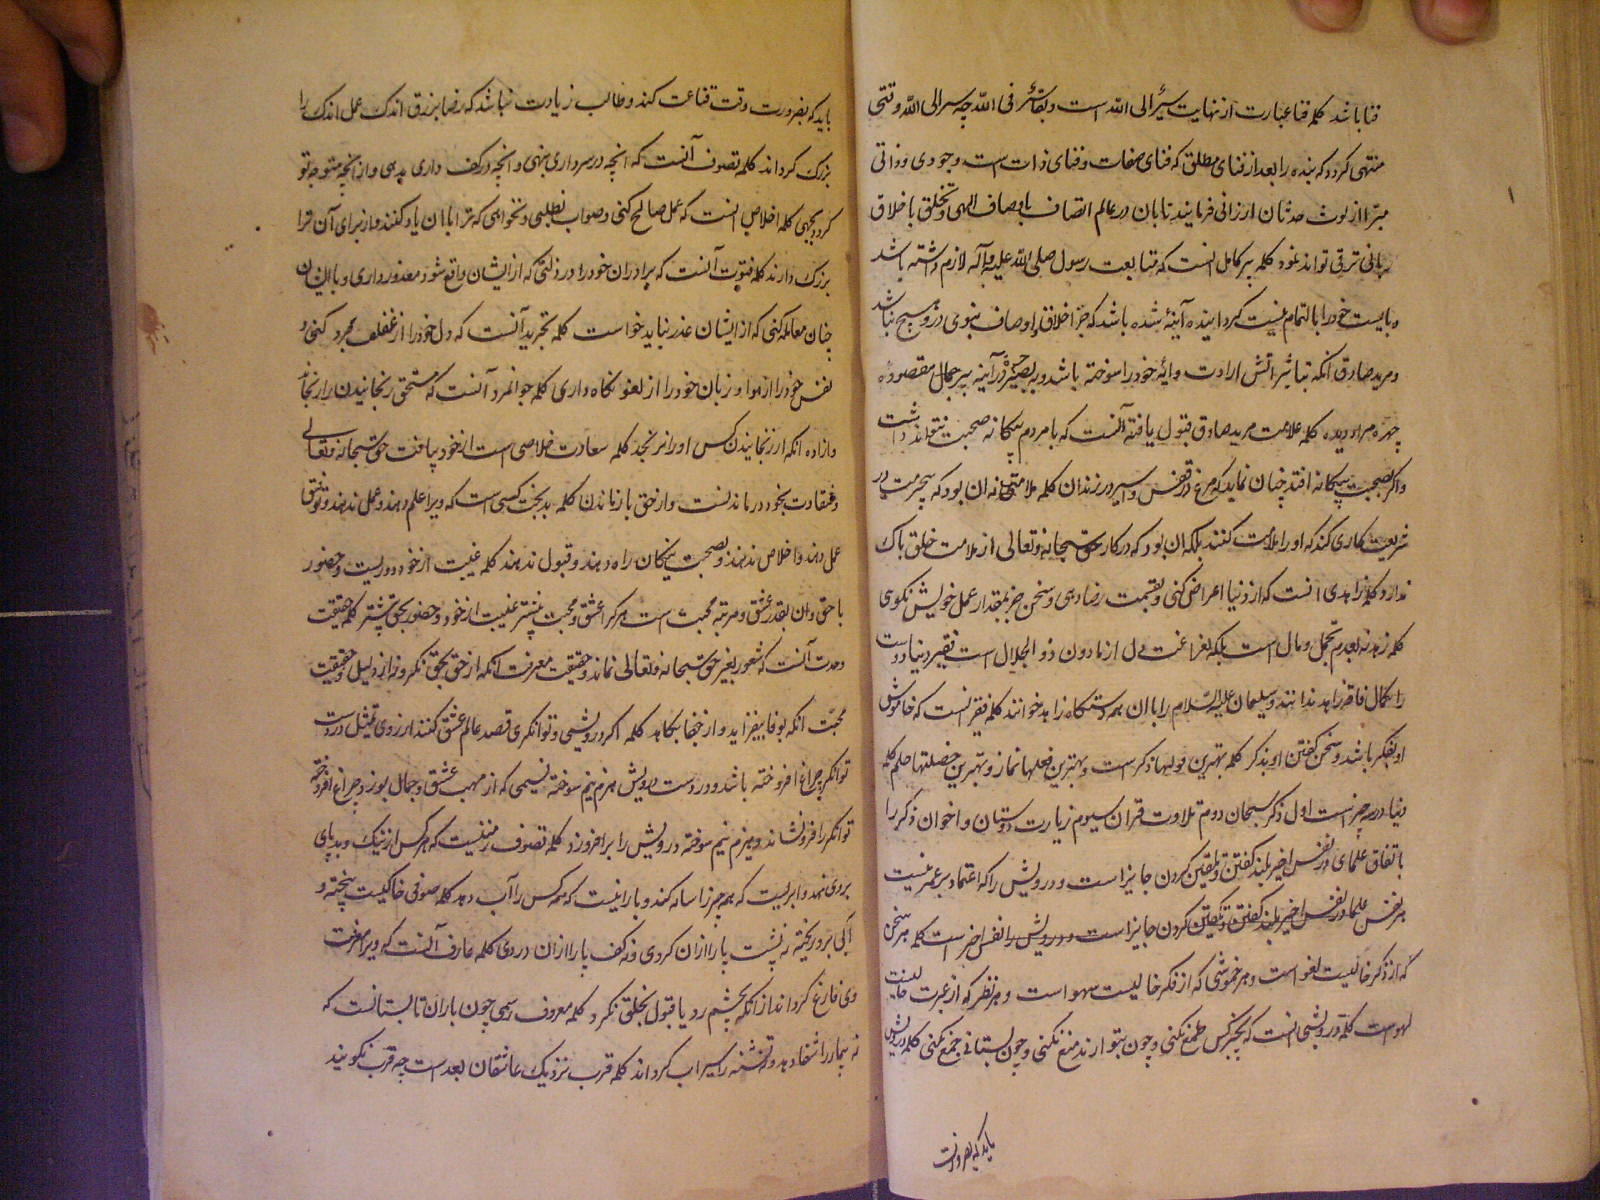 فنا باشد کلمه فنا عبارت از نهایت سیر الی الله است و بقا سیر فی الله چه سیر الی الله وقتی
منتهی کردد که بنده را بعد از فنای مطلق که فنای صفات و فنای ذات است وجودی و ذاتی
مبرّا از لوث حدثان ارزانی فرمایند تا بان در عالم اتصاف باوصاف الهی و تخلق باخلاق
ربانی ترقی تواند نمود کلمه پیر کامل انست که متابعت رسول صلی الله علیه و آله لازم داشته باشد
و بایست خود را بالتمام نیست کردانیده آینهٔ شده باشد که جز اخلاق و اوصاف نبوی درو هیچ نباشد
و مرید صادق آنکه بتاشیر آتش ارادت وایهٔ خود را سوخته باشد و به بصیرت در آینه پیر جمال مقصود
چهره مراد دیده کلمه علامت مرید صادق قبول یافته آنست که با مردم بیکانه صحبت نتواند داشت
و اکر بصحبت بیکانه افتد چنان نماید که مرغ در قفس و اسیر در زندان کلمه ملامتی نه ان بود که بیحرمتی در
شریعت کاری کند که او را ملامت کنند بلکه ان بود که در کار حق سبحانه و تعالی از ملامت خلق باک
ندارد کلمه زاهدی انست که از دنیا اعراض کنی و بقسمت رضا دهی و سخن جز بمقدار عمل خویش نکوی
کلمه زهد نه بعدم تجمل و مال است بلکه بفراغت دل از مادون ذو الجلال است فقیر دنیا دوست
را بکمال فاقه زاهد ندانند و سلیمان علیه السلام را با ان همه دستکاه زاهد خوانند کلمه فقیر انست که خاموشی
او بفکر باشد و سخن کفتن او بذکر کلمه بهترین قولها ذکر است و بهترین فعلها نماز و بهترین خصلتها حلم کلمه
دنیا در سه چیز است اول ذکر سبحان دوم تلاوت قران سیوم زیارت دوستان و اخوان ذکر را
باتفاق علمای در نفس اخیر بلند کفتن و تلقین کردن جایز است و درویش را که اعتماد بر عمر نیست
هر نفس علما در نفس اخیر بلند کفتن و تلقین کردن جایز است و درویش را نفس اخیر است کلمه هر سخن
که از ذکر خالیست لغو است و هر خموشی که از فکر خالیست سهو است و هر نظر که از عبرت خالیست
لهو است کلمه درویشی انست که بچیز کس طمع نکنی و چون بتو ارند منع نکنی و چون بستانی جمع نکنی کلمه درویش
باید که بضرورت
باید که بضرورت وقت قناعت کند و طالب زیادت نباشد که رضا برزق اندک عمل اندک را
بزرک کرداند کلمه تصوف آنست که انچه در سر داری بنهی و انچه در کف داری بدهی و از انچه متوجه تو
کردد نجهی کلمه اخلاص انست که عمل صالح کنی و صواب نطلبی و نخواهی که ترا بان یاد کنند و از برای آن ترا
بزرک دارند کلمه فتوت آنست که برادران خود را در ذلتی که از ایشان واقع شود معذور داری و با ایشان
چنان معامله کنی که از ایشان عذر نباید خواست کلمه تجرید آنست که دل خود را از غفلت مجرد کنی و
نفس خود را از هوا و زبان خود را از لغو نکاه داری کلمه جوانمرد آنست که مستحق رنجانیدن را نرنجاند
و ازاده انکه از رنجانیدن کس او را نرنجد کلمه سعادت خلاصی است از خود بیافت حق سبحانه و تعالی
و شقاوت بخود درماندنست و از حق بازماندن کلمه بدبخت کسی است که ویرا علم دهند و عمل ندهند و توفیق
عمل دهند و اخلاص ندهند و بصحبت نیکان راه دهند و قبول ندهند کلمه غیبت از خود دوریست و حضور
با حق و ان بقدر عشق و مرتبه محبت است هر کرا عشق و محبت بیشتر غیبت از خود و حضور بحق بیشتر کلمه حقیقت
وحدت آنست که شعور بغیر حق سبحانه و تعالی نماند و حقیقت معرفت انکه از حق بحق نکرد نه از دلیل و حقیقت
محبت انکه بوفا بیفزاید و از جفا بنکاهد کلمه اکر درویشی و توانکری قصد عالم عشق کنند از روی تمثیل در دست
توانکر چراغ افروخته باشد و در دست درویش هیزم نیم سوخته نسیمی که از مهب عشق و جمال بوزد چراغ افروخته
توانکر را فرو نشاند و هیزم نیم سوخته درویش را برافروزد کلمه تصوف زمینیست که هر کس از نیک و بد پای
بروی نهد و ابریست که همه چیز را سایه کند و بارانیست که همه کس را آب دهد کلمه صوفی خاکیست بیخته و
آبی برو ریخته نه پشت پا را ازان کردی و نه کف پا را ازان دردی کلمه عارف آنست که ویرا معرفت
وی فارغ کرداند از انکه بچشم رد یا قبول بخلق نکرد کلمه معروف رسمی چون باران تابستانست که
نه بیمار را شفا دهد و نه تشنه را سیراب کرداند کلمه قرب نزدیک عاشقان بعد است چه قرب نکویند